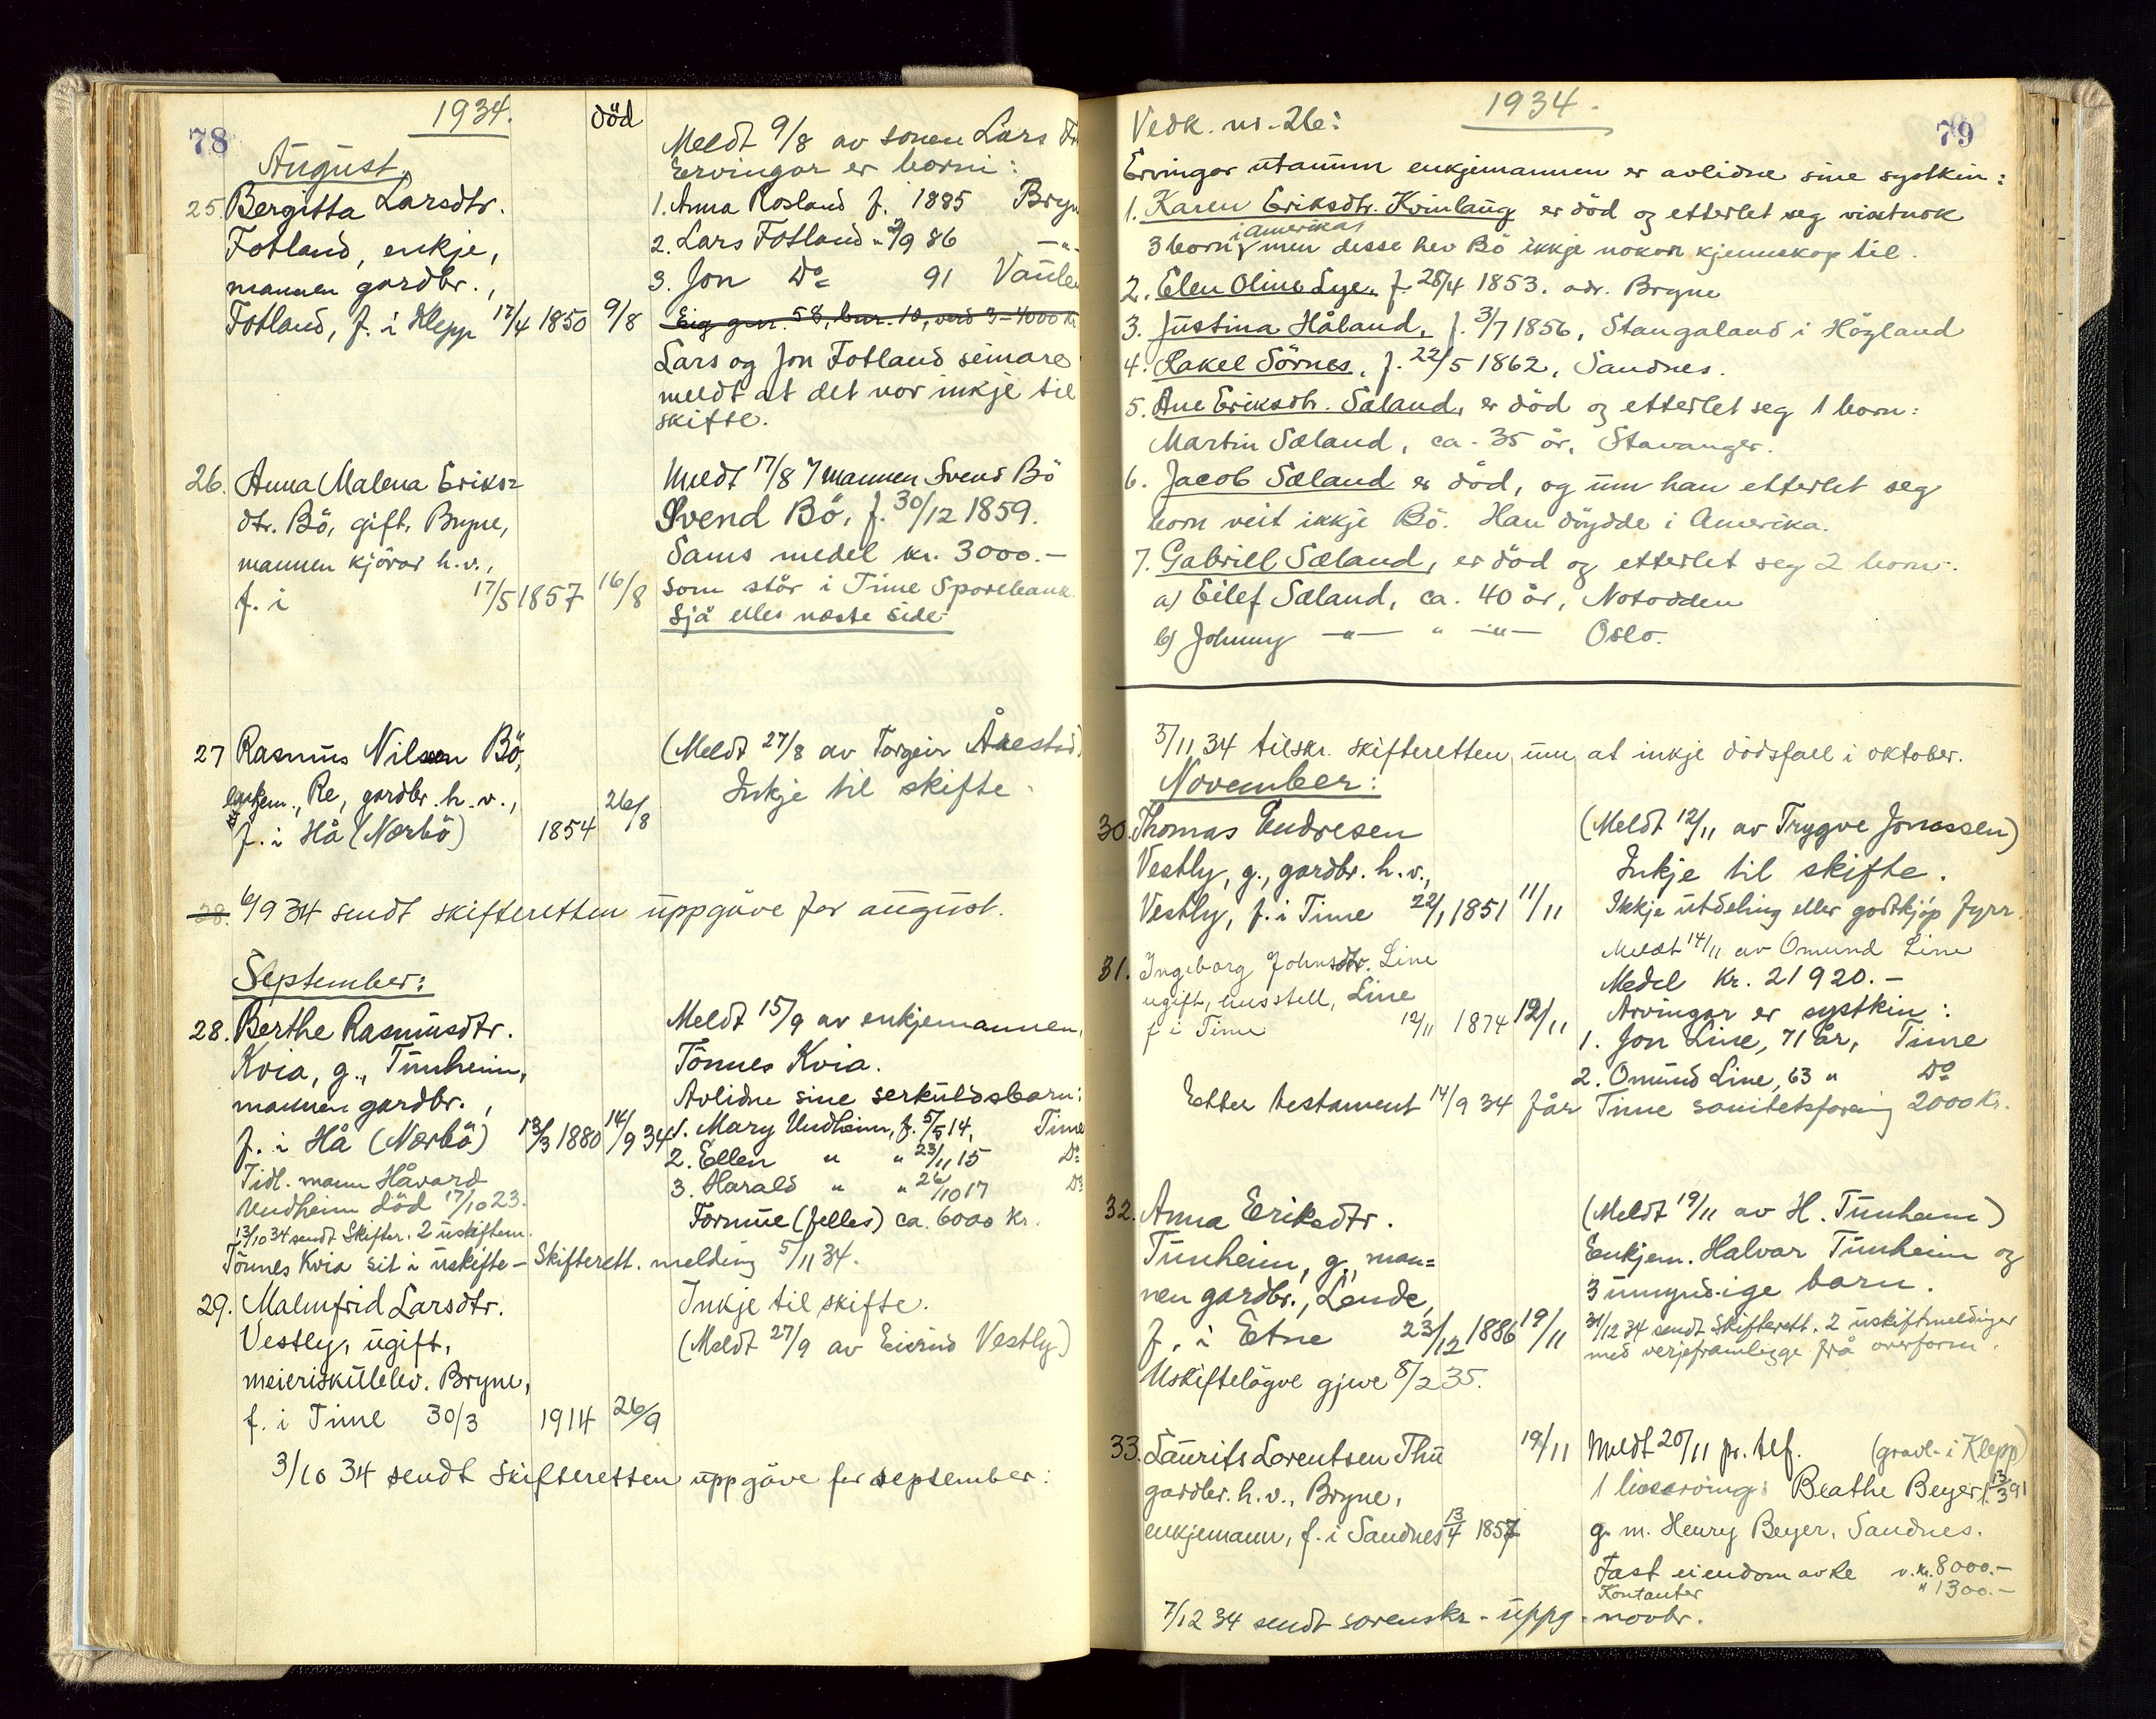 78
1934.
död
August.
25. Bergitta Larsdtr.
Fotland, enkje,
mannen gardbr.,
Fotland, f. i Klepp 17/4 1850 9/8
Meldt 9/8 av sonen Lars
Ervingar er borni:
1. Anna Rosland f. 1885 Bryn
2. Lars Fotland " 2/9 86 —"—
3. Jon Do 91
Eig gnr. 58, bnr. 10, verd 3-4000 kr.
Lars og Jon Fotland seinare
meldt at det var inkje til
skifte.
26. Anna Malena Eriks=
dtr. Bö, gift, Bryne,
mannen kjörar h.v.,
f. i 17/5 1857 16/8
Meldt 17/8 / mannen Svend Bö
Svend Bö, f. 30/12 1859.
Sams medel kr. 3000.-
som står i Time Sparebank.
Sjå elles næste side
27 Rasmus Nilsen Bö,
enkjem., Re, gardbr. h.v.,
f. i Hå (Nærbö) 1854 26/8
(Meldt 27/8 av Torgeir Årestad)
Inkje til skifte.
28. 6/9 34 sendt skifteretten uppgåve for august.
September:
28. Berthe Rasmusdtr.
Kvia, g., Tunheim,
mannen gardbr.,
f. i Hå (Nærbö) 13/3 1880 14/9 34
Tidl. mann Håvard
Undheim död 17/10 23.
13/10 34 sendt Skifter. 2 uskiftem.
Tönnes Kvia sit i uskifte - Skifterett. melding 5/11 34.
Meldt 15/9 av enkjemannen,
Tönnes Kvia.
Avlidne sine serkuldsbarn:
1. Mary Undheim, f. 5/5 14, Time
2. Ellen " " 23/11 15 Do
3. Harald " " 26/10 17 Do
Formue (felles) ca. 6000 kr.
29. Malmfrid Larsdtr.
Vestly, ugift,
meieriskulelev. Bryne,
f. i Time 30/3 1914 26/9
Inkje til skifte.
(Meldt 27/9 av Eivind Vestly)
3/10 34 sendt skifteretten uppgåve for september:
1934.
79
Vedk. nr. 26:
Ervingar utanum enkjemannen er avlidne sine systkin:
1. Karen Eriksdtr. Kvinlaug er död og etterlet seg visstnok
i Amerika,
3 born men desse hev Bö ikkje nokon kjennskap til.
2. Elen Oline Lye, f. 28/4 1853. adr. Bryne
3. Justina Håland, f. 3/7 1856, Stangaland i Högland
4. Rakel Sörnes, f. 22/5 1862, Sandnes.
5. Ane Eriksdtr. Sæland, er död og etterlet seg 1 born:
Martin Sæland, ca. 35 år, Stavanger.
6. Jacob Sæland er död, og um han etterlet seg
born veit ikkje Bö. Han döydde i Amerika.
7. Gabriel Sæland, er död og etterlet seg 2 born:
a) Eilef Sæland, ca. 40 år, Notodden
b) Johnny —"— " —"— Oslo.
5/11 34 tilskr. skifteretten um at inkje dödsfall i oktober.
November:
30. Thomas Endresen
Vestly, g., gardbr. h.v.,
Vestly, f. i Time 22/1 1851 11/11
(Meldt 12/11 av Trygve Jonassen)
Inkje til skifte.
Ikkje utdeling eller godtkjöp fyrr.
31. Ingeborg Johnsdtr. Line
ugift, husstell, Line
f i Time 12/11 1874 12/11
Meldt 14/11 av Omund Line
Medel kr. 21920.-
Arvingar er systkin:
1. Jon Line, 71 år, Time
2. Omund Line, 63 " Do
Etter testament 14/9 34 får Time sanitetsforeing 2000 kr.
32. Anna Eriksdtr.
Tunheim, g., man=
nen gardbr., Lende,
f. i Etne 23/12 1886 19/11
Uskiftelögve gjeve 8/2 35.
(Meldt 19/11 av H. Tunheim)
Enkjem. Halvar Tunheim og
3 umyndige barn.
31/12 34 sendt Skifterett. 2 uskiftmeldinger
med verjeframlegge frå overform.
33. Laurits Lorentsen Thu 19/11
gardbr. h.v., Bryne,
enkjemann, f. i Sandnes 13/4 1857
Meldt 20/11 pr. tlf. (gravl. i Klepp)
1 livsarving: Beathe Beyer f. 13/3 91
g. m. Henry Beyer, Sandnes.
Fast eiendom v. kr. 8000.-
Kontanter " 1300.-
7/12 34 sendt sorenskr. uppg. novbr.